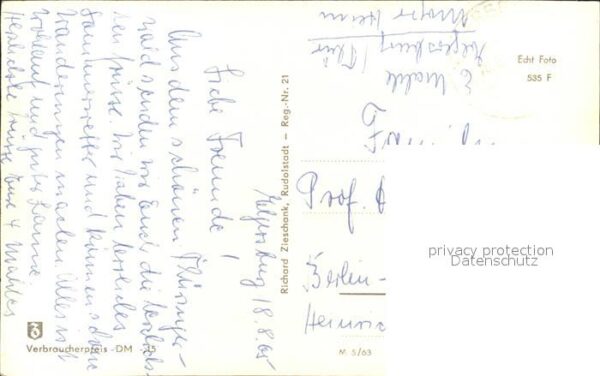 Elgersburg 18.8.65
Liebe Freunde!
Aus dem schönen Thüringer-
wald senden wir Euch die herzlich-
sten Grüsse. Wir haben herrliches
Sommerwetter und können schöne
Wanderungen machen. Alles ist
wohlauf und guter Laune.
Herzliche Grüsse Eure 4
Verbraucherpreis -DM -,15
Richard Zieschank, Rudolstadt — Reg.-Nr. 21
M 5/63
Echt Foto
535 F
Elgersburg / Thür
Prof.
Berlin-
Heinric
privacy protection
Datenschutz